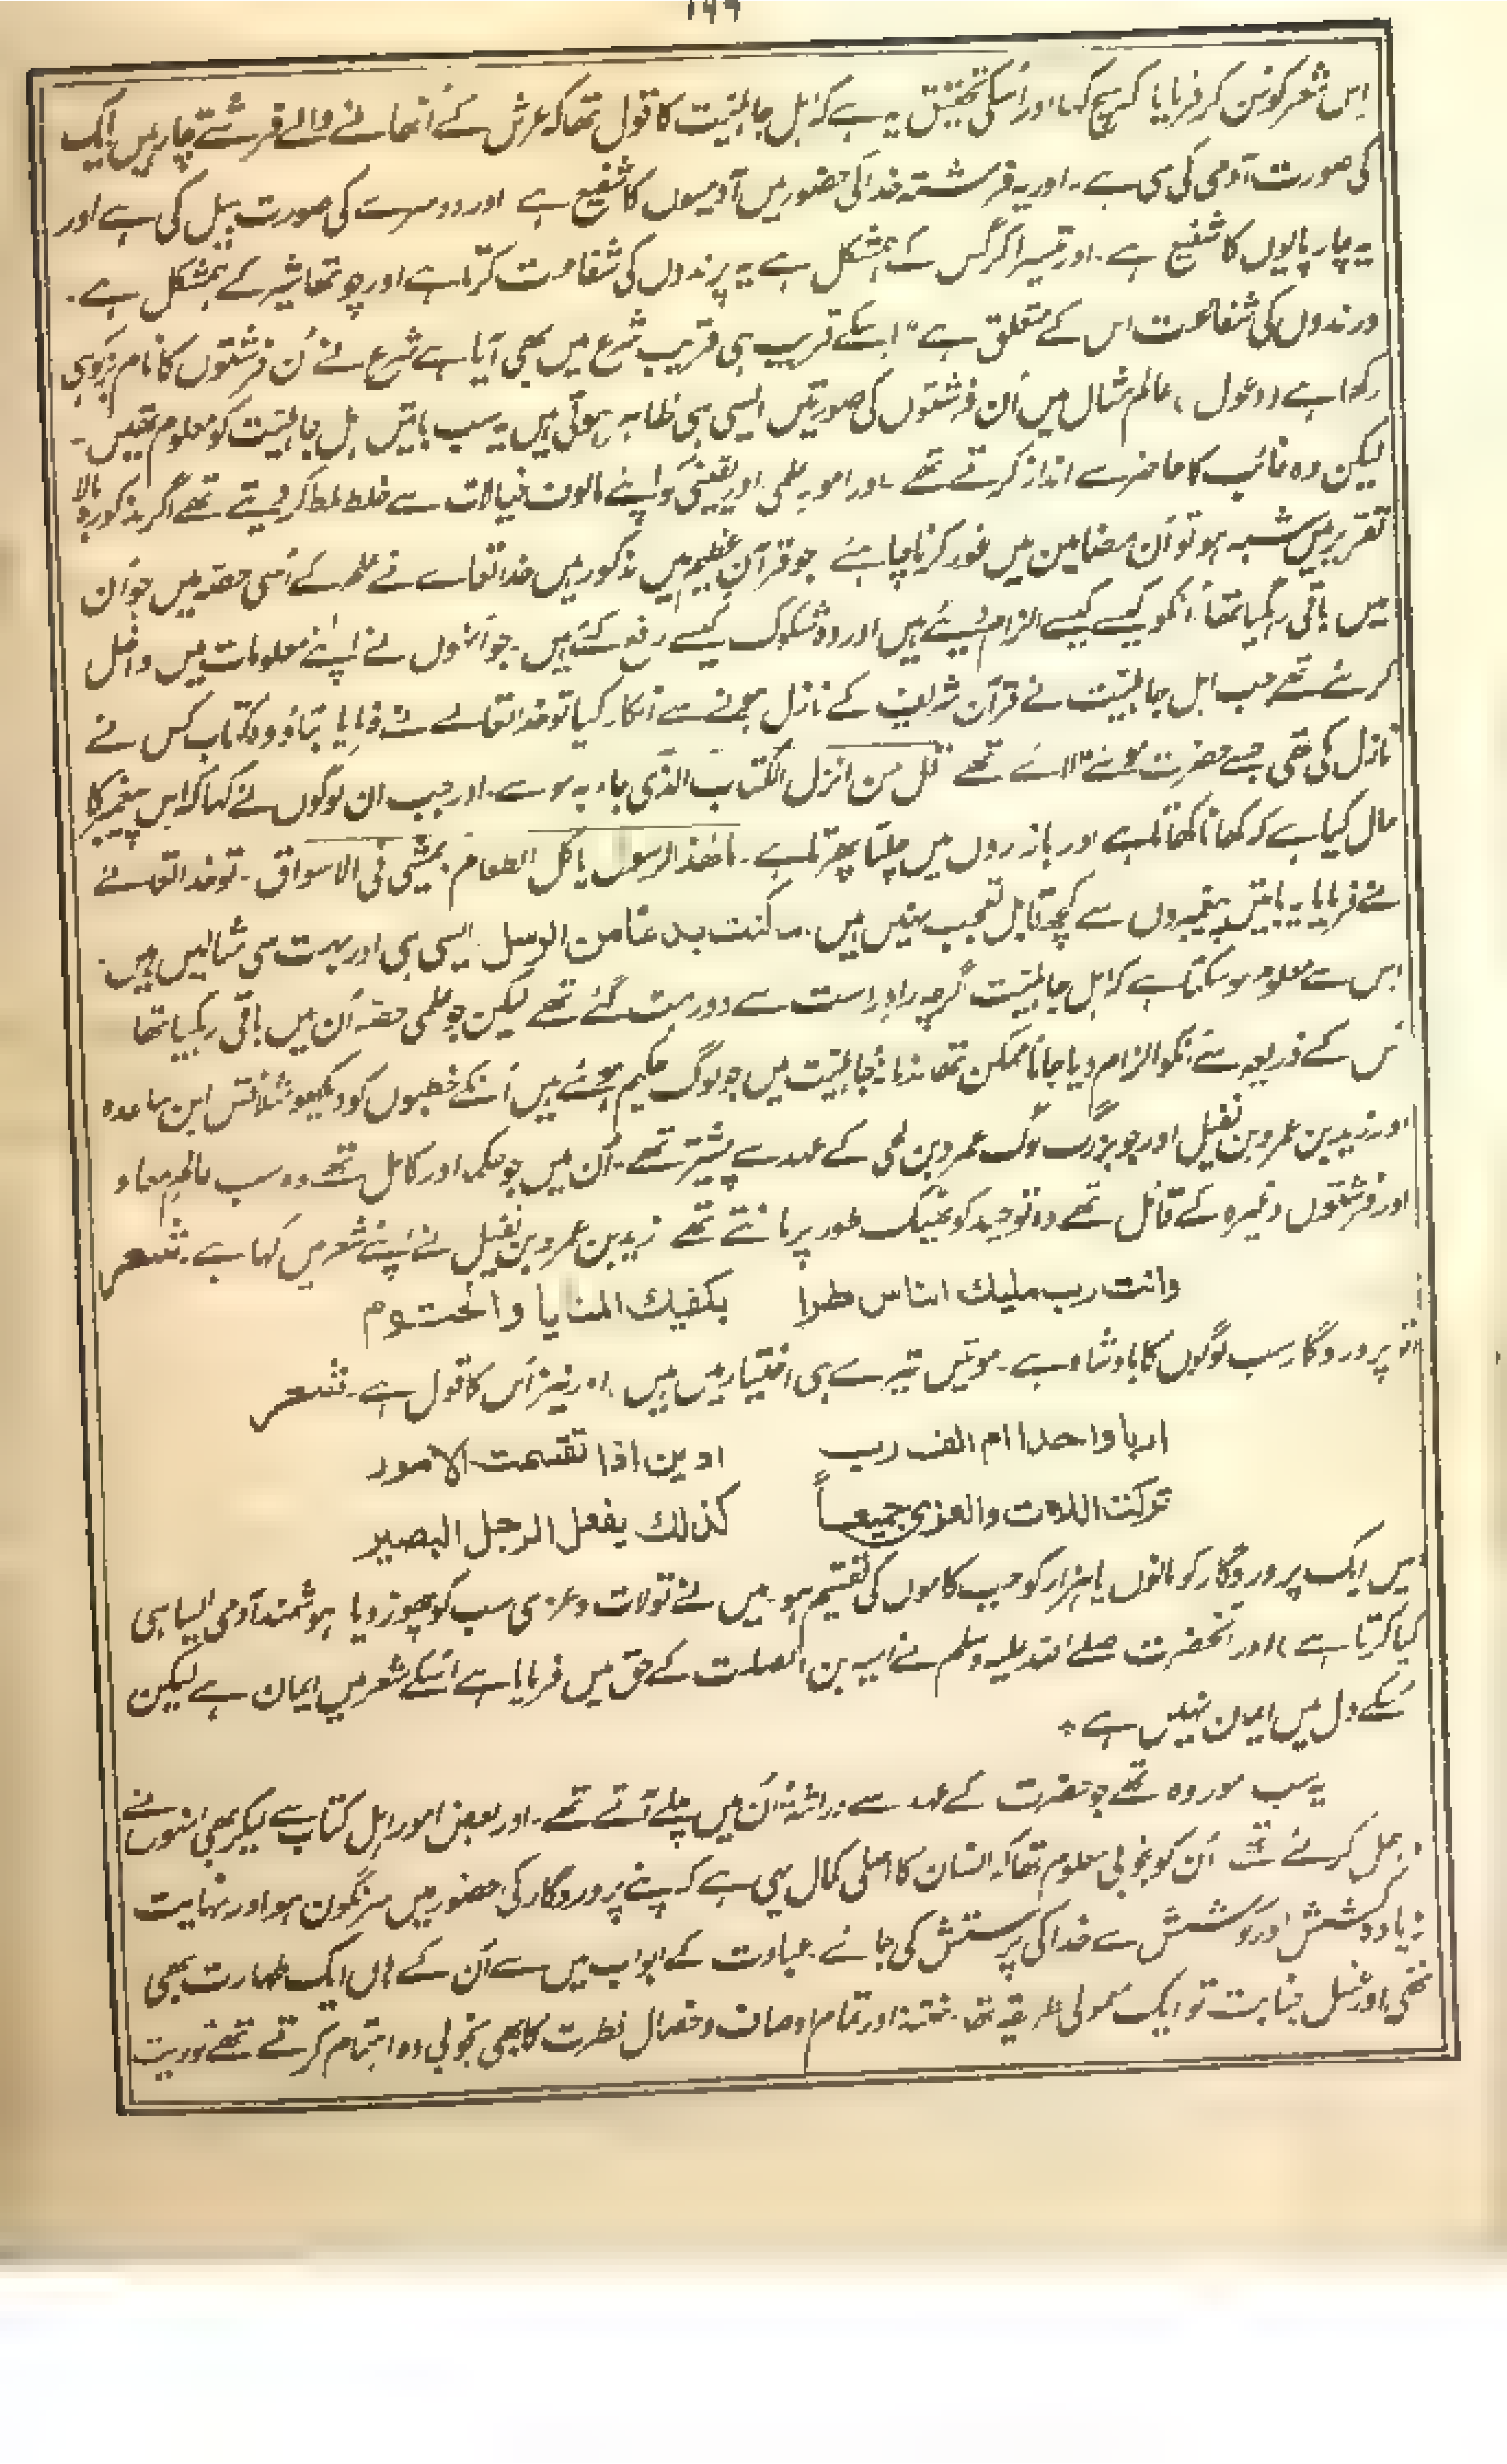 ۱۹۹
اس شعر کو سن کر فرمایا کہ سچ کہا اور اسکی تحقیق یہ ہے کہ اہل جاہلیت کا قول تھا کہ عرش کے اُٹھانے والے فرشتے چار ہیں ایک
کی صورت آدمی کی سی ہے۔ اور یہ فرشتہ خدا کی حضور میں آدمیوں کا شفیع ہے اور دوسرے کی صورت بیل کی ہے اور
یہ چارپایوں کا شفیع ہے۔ اور تیسرا کرگس کے ہمشکل ہے یہ پرندوں کی شفاعت کرتا ہے اور چوتھا شیر کے ہمشکل ہے۔
درندوں کی شفاعت اس کے متعلق ہے" اسکے قریب ہی قریب شرع میں بھی آیا ہے شرع نے اُن فرشتوں کا نام بزکوہی
رکھا ہے (وعول) عالم مثال میں اُن فرشتوں کی صورتیں ایسی ہی ظاہر ہوتی ہیں یہ سب باتیں اہل جاہلیت کو معلوم تھیں۔
لیکن وہ غائب کا حاضر سے انداز کرتے تھے۔ اور امور علمی اور یقینی کو اپنے مالوف خیالات سے خلط ملط کر دیتے تھے اگر مذکورہ بالا
تقریر میں شبہ ہو تو اُن مضامین میں غور کرنا چاہئے جو قرآن عظیم میں مذکور ہیں خدا تعالے نے علم کے اُسی حصہ میں جو اُن
میں باقی رہگیا تھا اُنکو کیسے کیسے الزام دیئے ہیں اور وہ شکوک کیسے رفع کئے ہیں۔ جو اُنہوں نے اپنے معلومات میں داخل
کرلئے تھے جب اہل جاہلیت نے قرآن شریف کے نازل ہونے سے انکار کیا تو خدا تعالے نے فرمایا بتاؤ وہ کتاب کس نے
نازل کی تھی جسے حضرت موسے لائے تھے قل من انزل الکتاب الذی جاء بہ موسے۔ اور جب ان لوگوں نے کہا کہ اس پیغمبر کا
حال کیا ہے کہ کھانا کھاتا ہے اور بازاروں میں چلتا پھرتا ہے۔ مالھذا الرسول یاکل الطعام یمشی فی الاسواق۔ تو خدا تعالے
نے فرمایا یہ باتیں پیغمبروں سے کچھ قابل تعجب نہیں ہیں۔ ما کنت بدعا من الرسل ایسی ہی اور بہت سی مثالیں ہیں۔
اس سے معلوم ہو سکتا ہے کہ اہل جاہلیت اگرچہ راہ راست سے دور ہٹ گئے تھے لیکن جو علمی حصہ اُن میں باقی رہگیا تھا
اُس کے ذریعہ سے انکو الزام دیا جانا ممکن تھا زمانۂ جاہلیت میں جو لوگ حکیم ہوئے ہیں اُنکے خطبوں کو دیکھو مثلاً قس ابن ساعدہ
اور زید بن عمرو بن نفیل اور جو بزرگ لوگ عمرو بن لحی کے عہد سے پیشتر تھے۔ اُن میں جو حکم اور کامل تھے وہ سب عالم معاد
اور فرشتوں وغیرہ کے قائل تھے وہ توحید کو ٹھیک طور پر مانتے تھے زید بن عمرو بن نفیل نے اپنے شعر میں کہا ہے۔ شعر
وانت رب ملیك الناس طرا بکفیك المنایا والحتوم
تو پروردگار سب لوگوں کا بادشاہ ہے۔ موتیں تیرے ہی اختیار میں ہیں۔ اور نیز اُس کا قول ہے۔ شعر
اربا واحدا ام الف رب ادین اذا تقسمت الامور
ترکت اللات والعزی جمیعاً کذلك یفعل الرجل البصیر
میں ایک پروردگار کو مانوں یا ہزار کو جب کاموں کی تقسیم ہو۔ میں نے تو لات و عزی سب کو چھوڑ دیا ہوشمند آدمی ایسا ہی
کیا کرتا ہے) اور آنحضرت صلے اللہ علیہ وسلم نے امیہ بن الصلت کے حق میں فرمایا ہے اُسکے شعر میں ایمان ہے لیکن
اُسکے دل میں ایمان نہیں ہے
یہ سب امور وہ تھے جو حضرت کے عہد سے وراثۃً اُن میں چلے آتے تھے۔ اور بعض امور اہل کتاب سے لیکر بھی انہوں نے
داخل کرلئے تھے اُن کو بخوبی معلوم تھا کہ انسان کا اصلی کمال یہی ہے کہ اپنے پروردگار کی حضور میں سرنگون ہو اور نہایت
زیادہ کشش اور کوشش سے خدا کی پرستش کی جائے۔ عبادت کے ابواب میں سے اُن کے ہاں ایک طہارت بھی
تھی اور غسل جنابت تو ایک معمولی طریقہ تھا۔ ختنہ اور تمام اوصاف و خصال فطرت کا بھی بخوبی وہ اہتمام کرتے تھے توریت